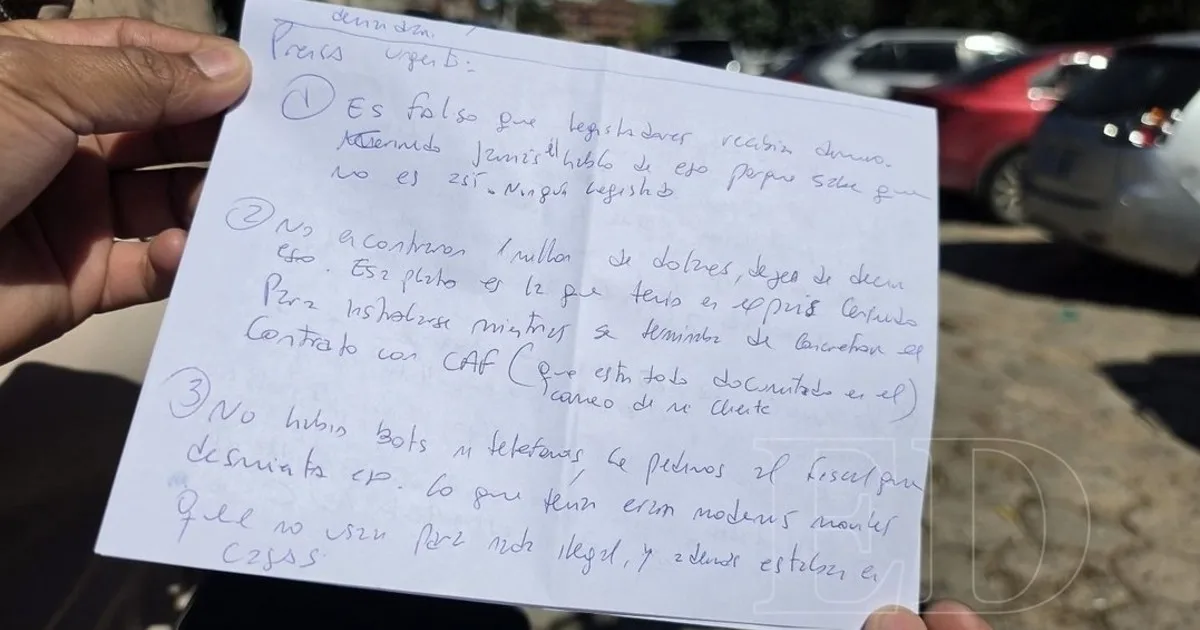 Prensa urgente:
① Es falso que legisladores recibían dinero.
jamás él habló de eso porque sabe que
no es así. Ningún legislador.
② No encontraron 1 millón de dólares, dejen de decir
eso. Esa plata es la que tenía en el país
Para instalarse mientras se terminaba de concretar el
Contrato con CAF (que está todo documentado en el)
correo de mi cliente
③ No había Bots ni teléfonos, le pedimos al fiscal que
desmienta eso. Lo que tenía eran modems moviles
que el no usaba para nada ilegal, y además estaban en
cajas
ED